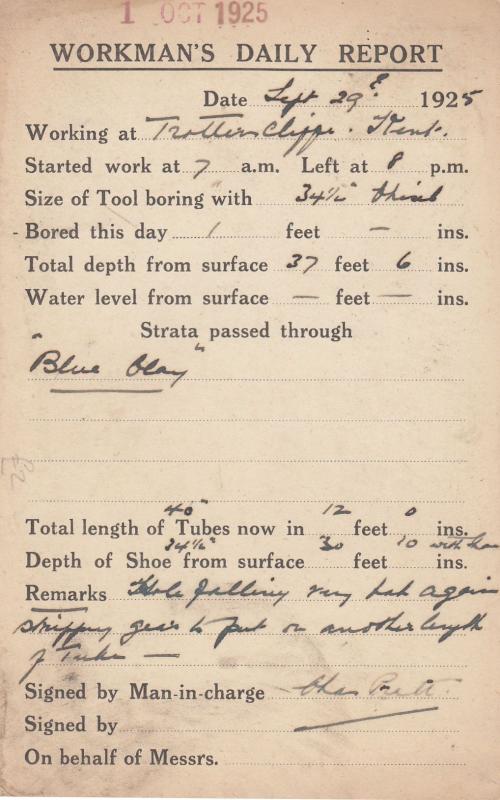 1 OCT 1925
WORKMAN'S DAILY REPORT
Date Sept 29th 1925
Working at Trotterscliffe. Kent.
Started work at 7 a.m. Left at 8 p.m.
Size of Tool boring with 34½" chisel
Bored this day 1 feet — ins.
Total depth from surface 37 feet 6 ins.
Water level from surface — feet — ins.
Strata passed through
"Blue Clay"
40" 12 0
Total length of Tubes now in feet ins.
34½" 30 10 with
Depth of Shoe from surface feet ins.
Remarks Hole falling very bad again
stripping gear to put on another length
of Tube —
Signed by Man-in-charge Chas
Signed by
On behalf of Messrs.